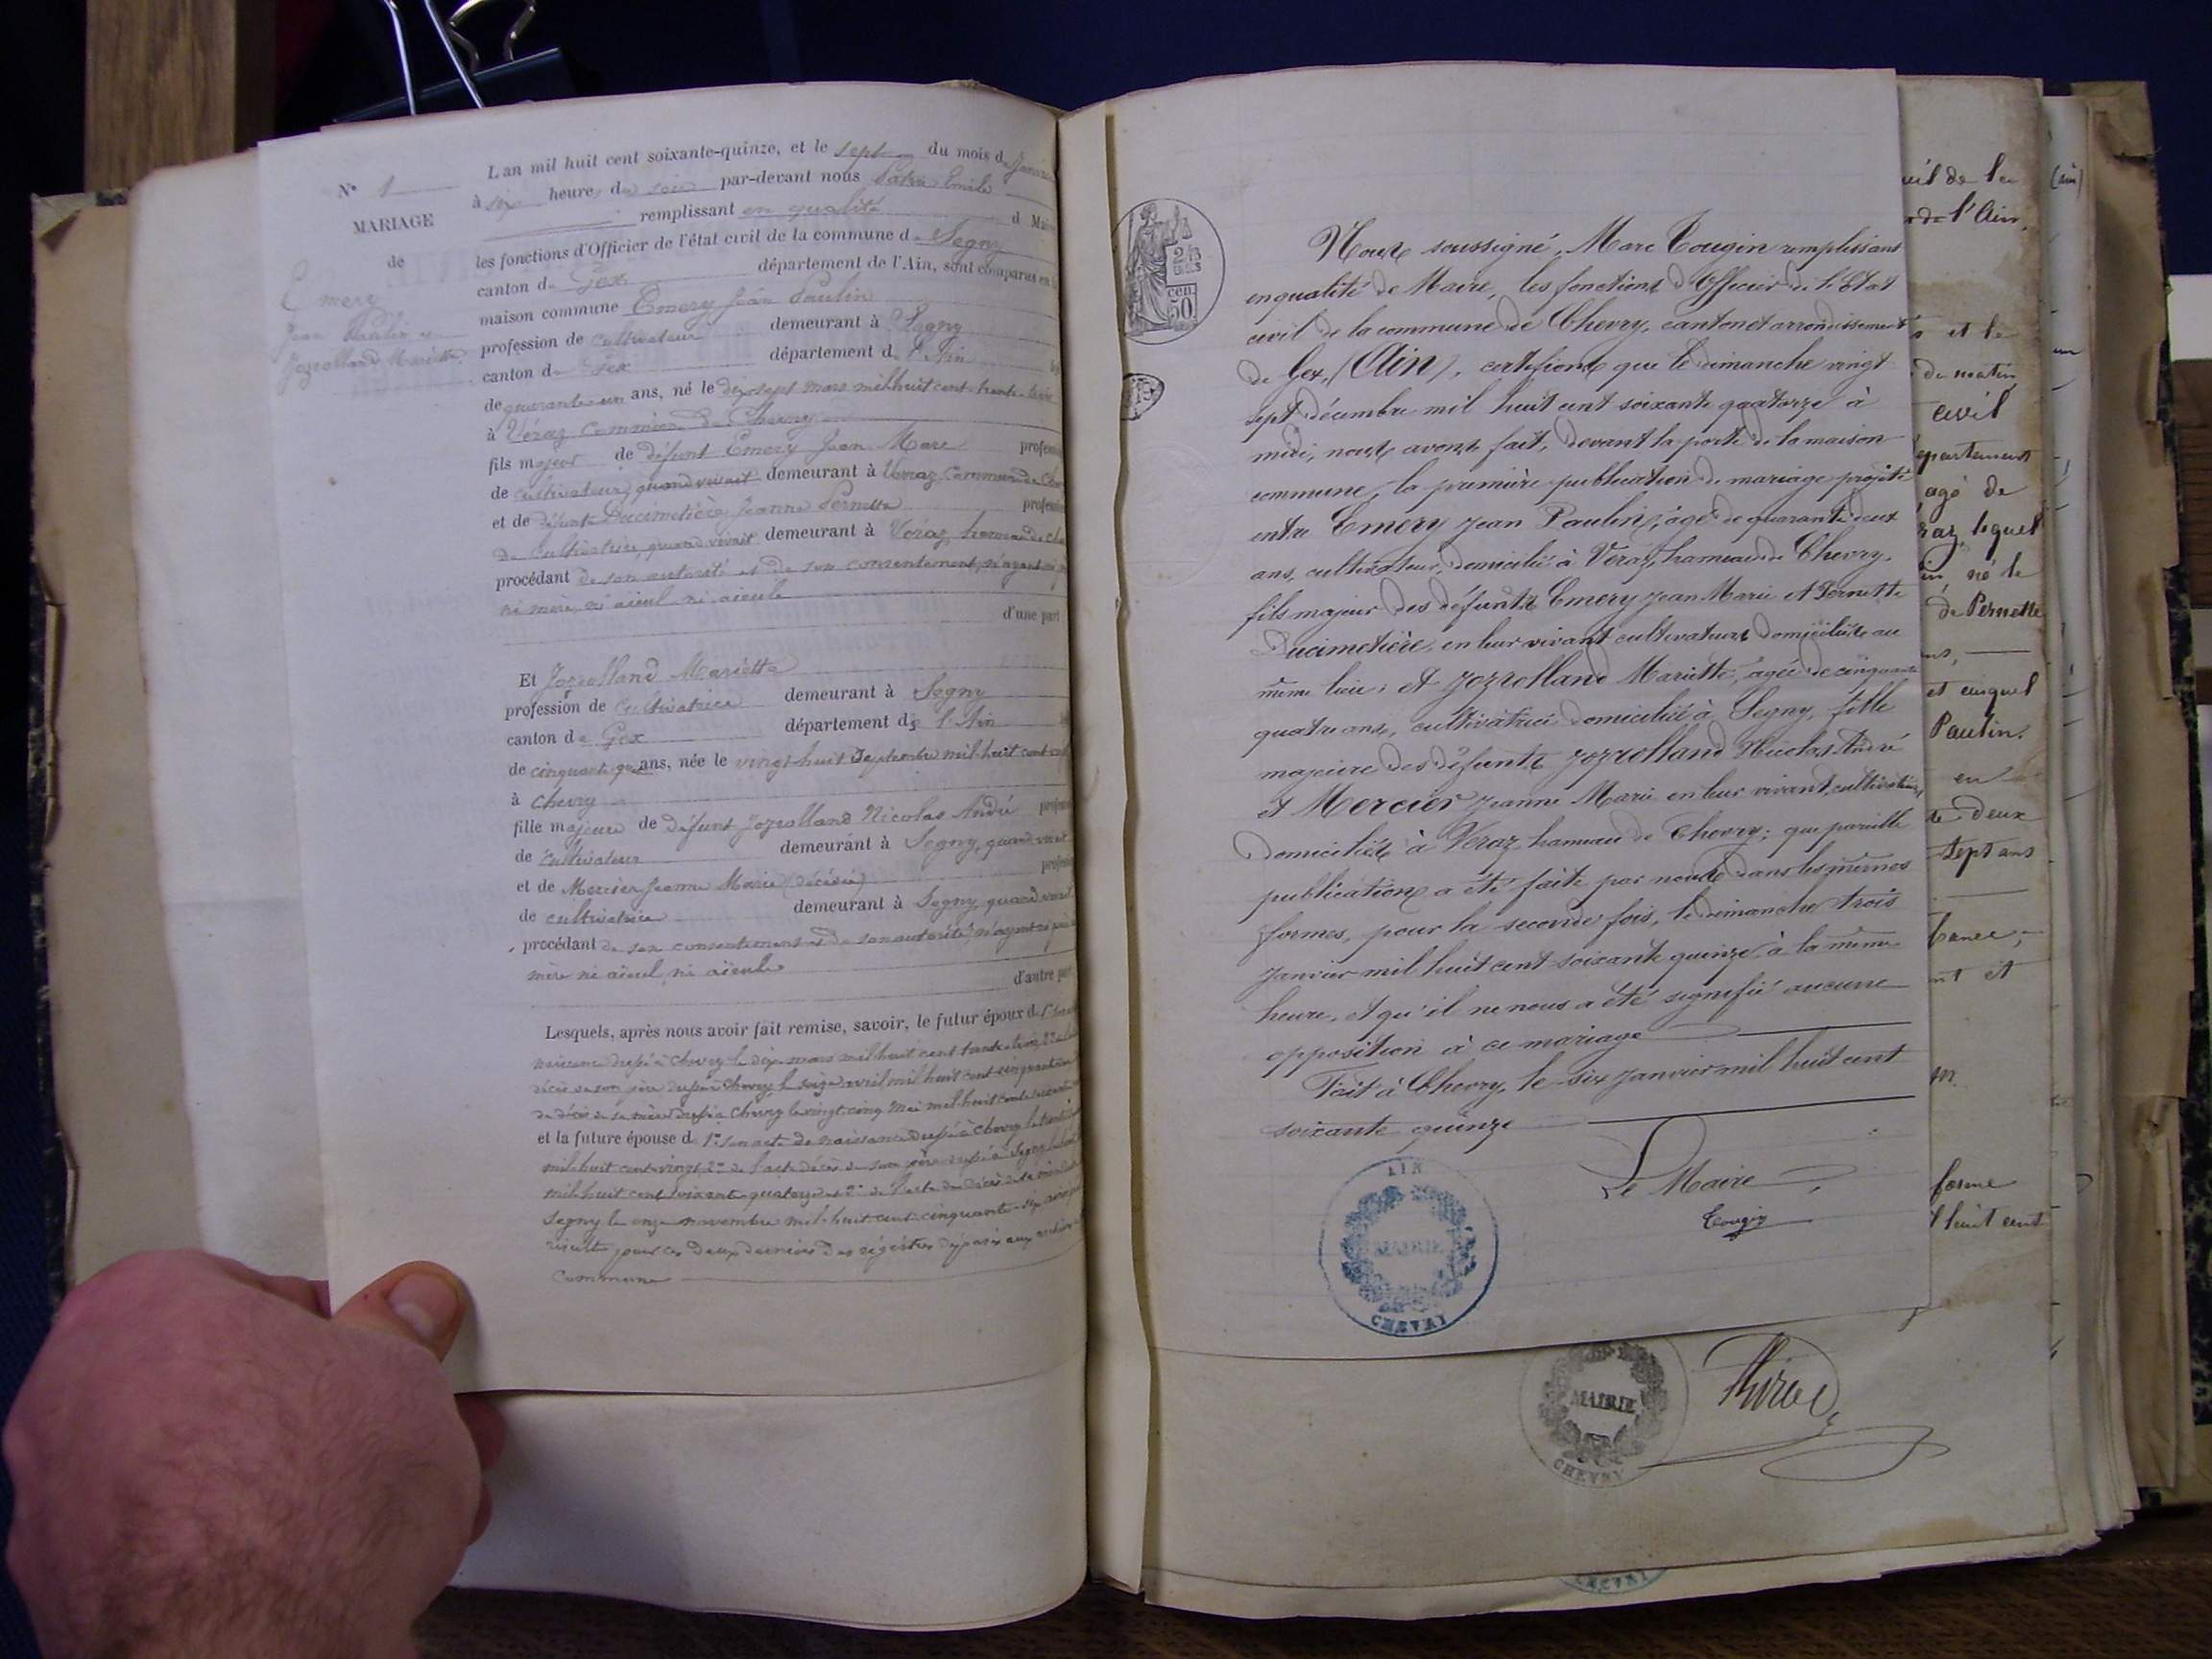 L'an mil huit cent soixante-quinze, et le sept du mois d
N° 1
à six heures du soir par-devant nous Emile
MARIAGE
remplissant en qualité d Mai
de
les fonctions d'Officier de l'état civil de la commune de Segny
canton de Gex département de l'Ain, sont comparus en
Emery
Jean Paulin et
Jozrolland Mariette
maison commune Emery Jean Paulin
profession de cultivateur demeurant à Segny
canton de Gex département de l'Ain
de quarante-un ans, né le dix-sept mars mil huit cent trente-trois
à Véraz commune de Chevry
fils majeur de défunt Emery Jean Marc profes
de cultivateur, quand vivait demeurant à Véraz, commune de
et de défunte Ducimetière Jeanne Pernette profession
de cultivatrice, quand vivait demeurant à Véraz, hameau de
procédant de son autorité et de son consentement, n'ayant ni
ni mère, ni aïeul ni aïeule
d'une part
Et Jozrolland Mariette
profession de cultivatrice demeurant à Segny
canton de Gex département de l'Ain
de cinquante ans, née le vingt-huit Septembre mil-huit cent
à Chevry
fille majeure de défunt Jozrolland Nicolas André
de cultivateur demeurant à Segny, quand vivait
et de Mercier Jeanne Marie (décédée)
de cultivatrice demeurant à Segny, quand vivait
procédant de son consentement et de son autorité, n'ayant ni père
mère ni aïeul, ni aïeule
d'autre part
Lesquels, après nous avoir fait remise, savoir, le futur époux de 1°
naissance dressé à Chevry le dix mars mil huit cent trente-trois, 2°
décès de son père dressé à Chevry le seize avril mil huit cent cinquante
de décès de sa mère dressé à Chevry le vingt-cinq Mai mil-huit cent
et la future épouse de 1° son acte de naissance dressé à Chevry le
mil-huit cent-vingt, 2° de l'acte décès de son père dressé à Segny
mil-huit cent soixante-quatorze et 3° de l'acte de décès de sa mère
Segny le onze novembre mil-huit cent cinquante-six
résulte pour ces deux derniers des régistres déposés aux archives
commune
Nous soussigné, Marc Tougin remplissant
en qualité de Maire, les fonctions d'Officier de l'Etat
civil de la commune de Chevry, canton et arrondissement
de Gex, (Ain), certifions que le dimanche vingt
sept décembre mil huit cent soixante quatorze à
midi, nous avons fait, devant la porte de la maison
commune, la première publication de mariage projeté
entre Emery Jean Paulin, âgé de quarante deux
ans, cultivateur, domicilié à Véraz, hameau de Chevry,
fils majeur des défunts Emery Jean Marie et Pernette
Ducimetière, en leur vivant cultivateurs domiciliés au
même lieu; et Jozrolland Mariette, agée de cinquante
quatre ans, cultivatrice domiciliée à Segny, fille
majeure des défunts Jozrolland Nicolas André
et Mercier Jeanne Marie en leur vivant, cultivateurs
domiciliés à Véraz, hameau de Chevry; que pareille
publication a été faite par nous dans les mêmes
formes, pour la seconde fois, le dimanche trois
janvier mil huit cent soixante quinze, à la même
heure, et qu'il ne nous a été signifié aucune
opposition à ce mariage
Fait à Chevry, le six janvier mil huit cent
soixante quinze
Le Maire
Tougin
AIN
MAIRIE
CHEVRY
MAIRIE
CHEVRY
de l'Ain
(ain)
et le
du matin
civil
département
agé de
lequel
né le
de Pernette
et duquel
Paulin
en
deux
sept ans
et
forme
huit cent
2/10
EN SUS
50
cen